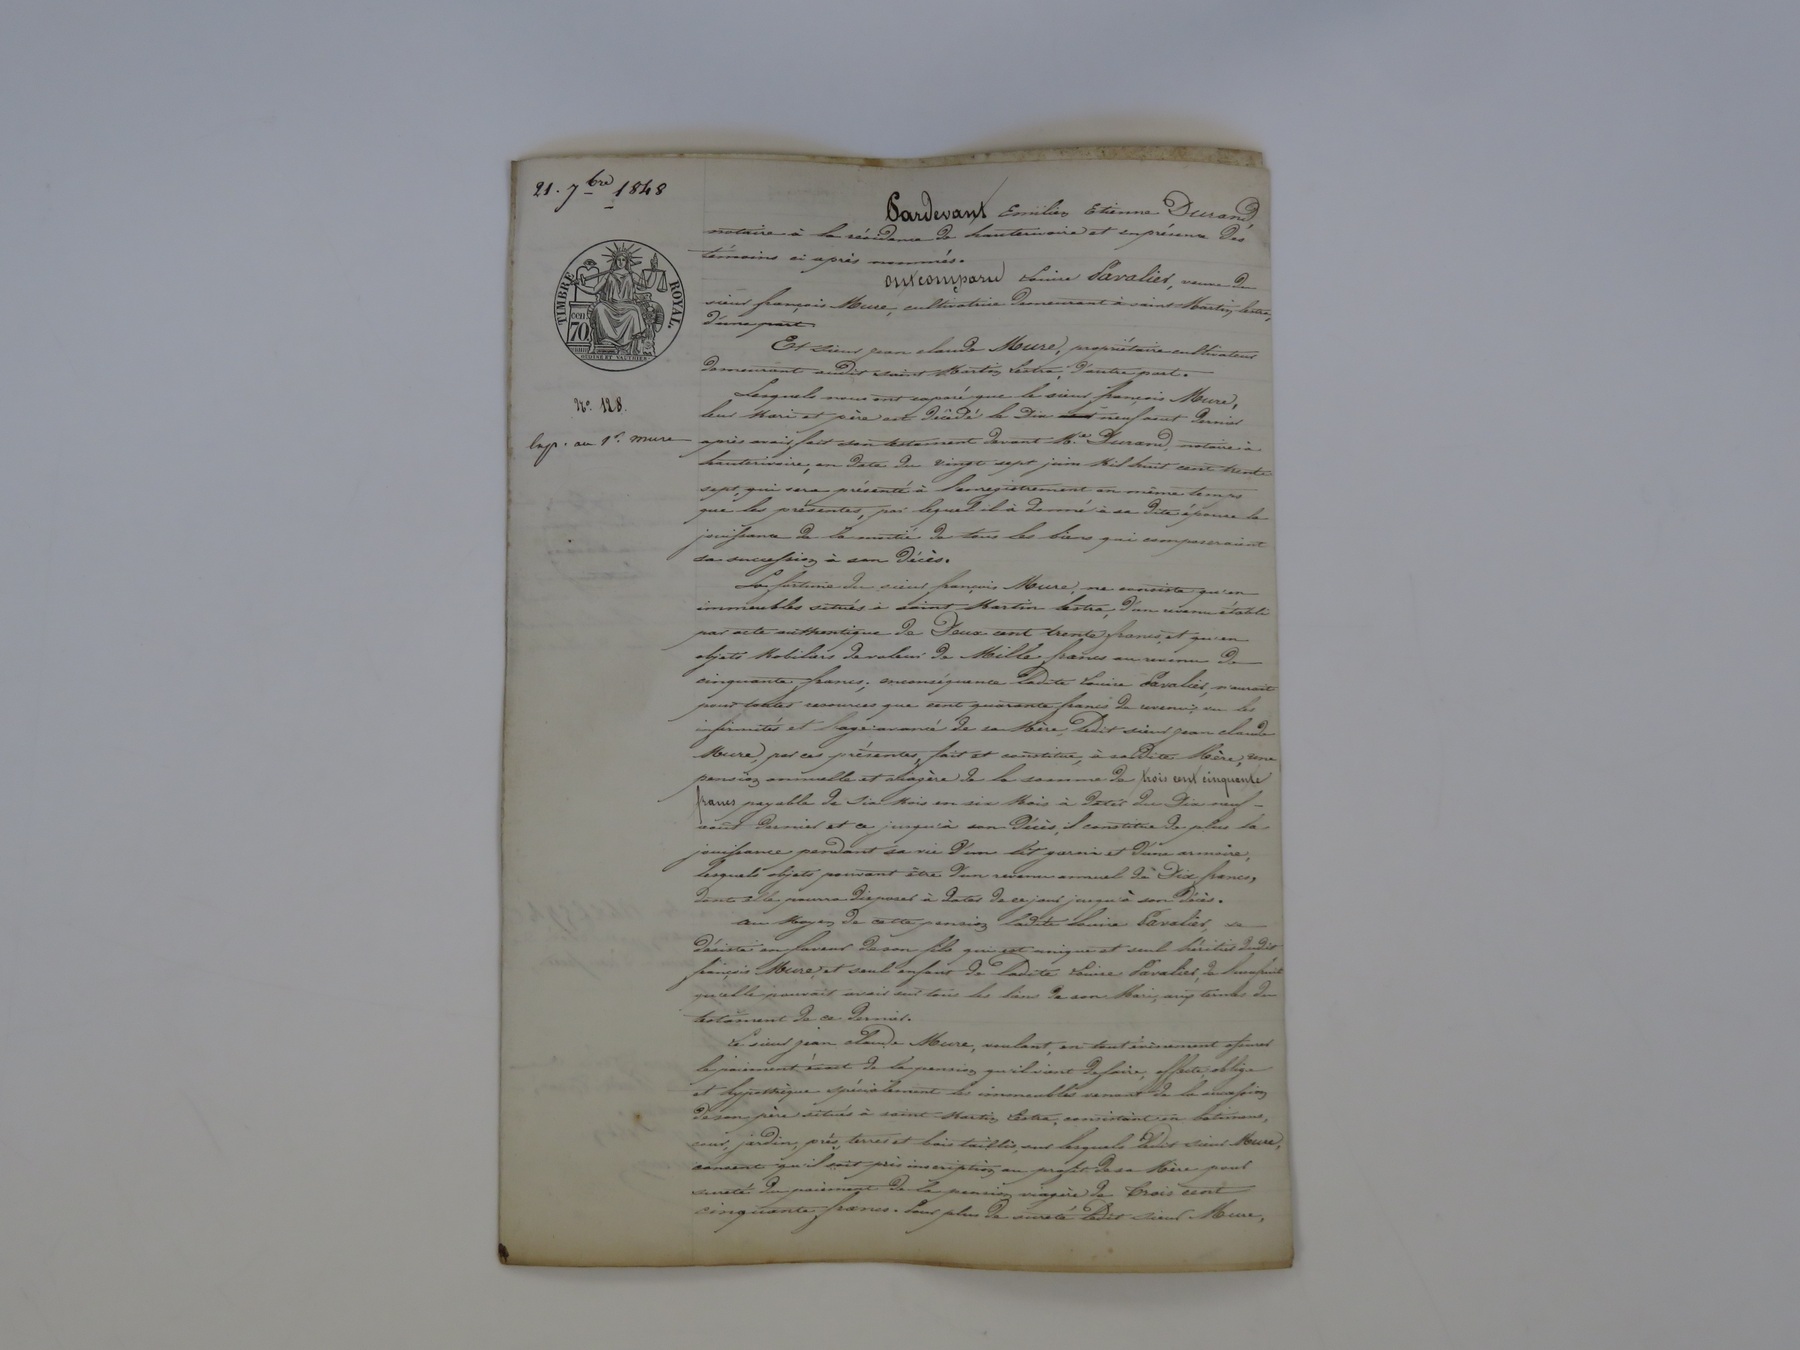 21. 7bre 1848
TIMBRE ROYAL.
cen
70
No. 128.
Exp. au Sr. mure
Pardevant Emilien Etienne Durand
notaire à la résidence de hauterivoire et en présence des
témoins ci après nommés.
ont comparu Louise Pavalier, veuve de
sieur françois Mure, cultivatrice demeurant à saint Martin Lestra,
d'une part.
Et sieur jean claude Mure, propriétaire cultivateur
demeurant audit saint Martin Lestra, d'autre part.
Lesquels nous ont exposé que le sieur françois Mure,
leur Mari et père est décédé le Dix neuf aout dernier
après avoir fait son testament devant Me Durand, notaire à
hauterivoire, en date du vingt sept juin Mil huit cent trente
sept, qui sera présenté à l'enregistrement en même temps
que les présentes, par lequel il à donné à sa dite épouse la
jouissance de la moitié de tous les biens qui composeraient
sa succession à son décès.
La fortune du sieur françois Mure, ne consiste qu'en
immeubles situés à saint Martin Lestra, d'un revenu établi
par acte authentique de Deux cent trente francs, et qu'en
objets Mobiliers de valeur de Mille francs au revenu de
cinquante francs; en conséquence ladite Louise Pavalier, n'aurait
pour toutes ressources que cent quarante francs de revenu; vu les
infirmités et l'age avancé de sa Mère, ledit sieur jean claude
Mure, par ces présentes, fait et constitue, à sa dite Mère, une
pension annuelle et viagère de la somme de trois cent cinquante
francs payable de six Mois en six Mois à dater du Dix neuf
aout dernier et ce jusqu'à son décès, il constitue de plus la
jouissance pendant sa vie d'un lit garni et d'une armoire,
lesquels objets peuvent être d'un revenu annuel de Dix francs,
dont elle pourra disposer à dater de ce jour jusqu'à son décès.
Au Moyen de cette pension ladite Louise Pavalier, se
désiste en faveur de son fils qui est unique et seul héritier dudit
françois Mure, et seul enfant de ladite Louise Pavalier, de l'usufruit
qu'elle pouvait avoir sur tous les biens de son Mari, aux termes du
testament de ce dernier.
Le sieur jean claude Mure, voulant, en tout évènement assurer
le paiement exact de la pension qu'il vient de faire, affecte, oblige
et hypothèque spécialement les immeubles venant de la succession
de son père situés à saint Martin Lestra, consistant en batimens,
cour, jardin, prés, terres et bois taillis, sur lesquels ledit sieur Mure,
consent qu'il soit pris inscription au profit de sa Mère pour
sureté du paiement de la pension viagère de trois cent
cinquante francs. Pour plus de sureté ledit sieur Mure,